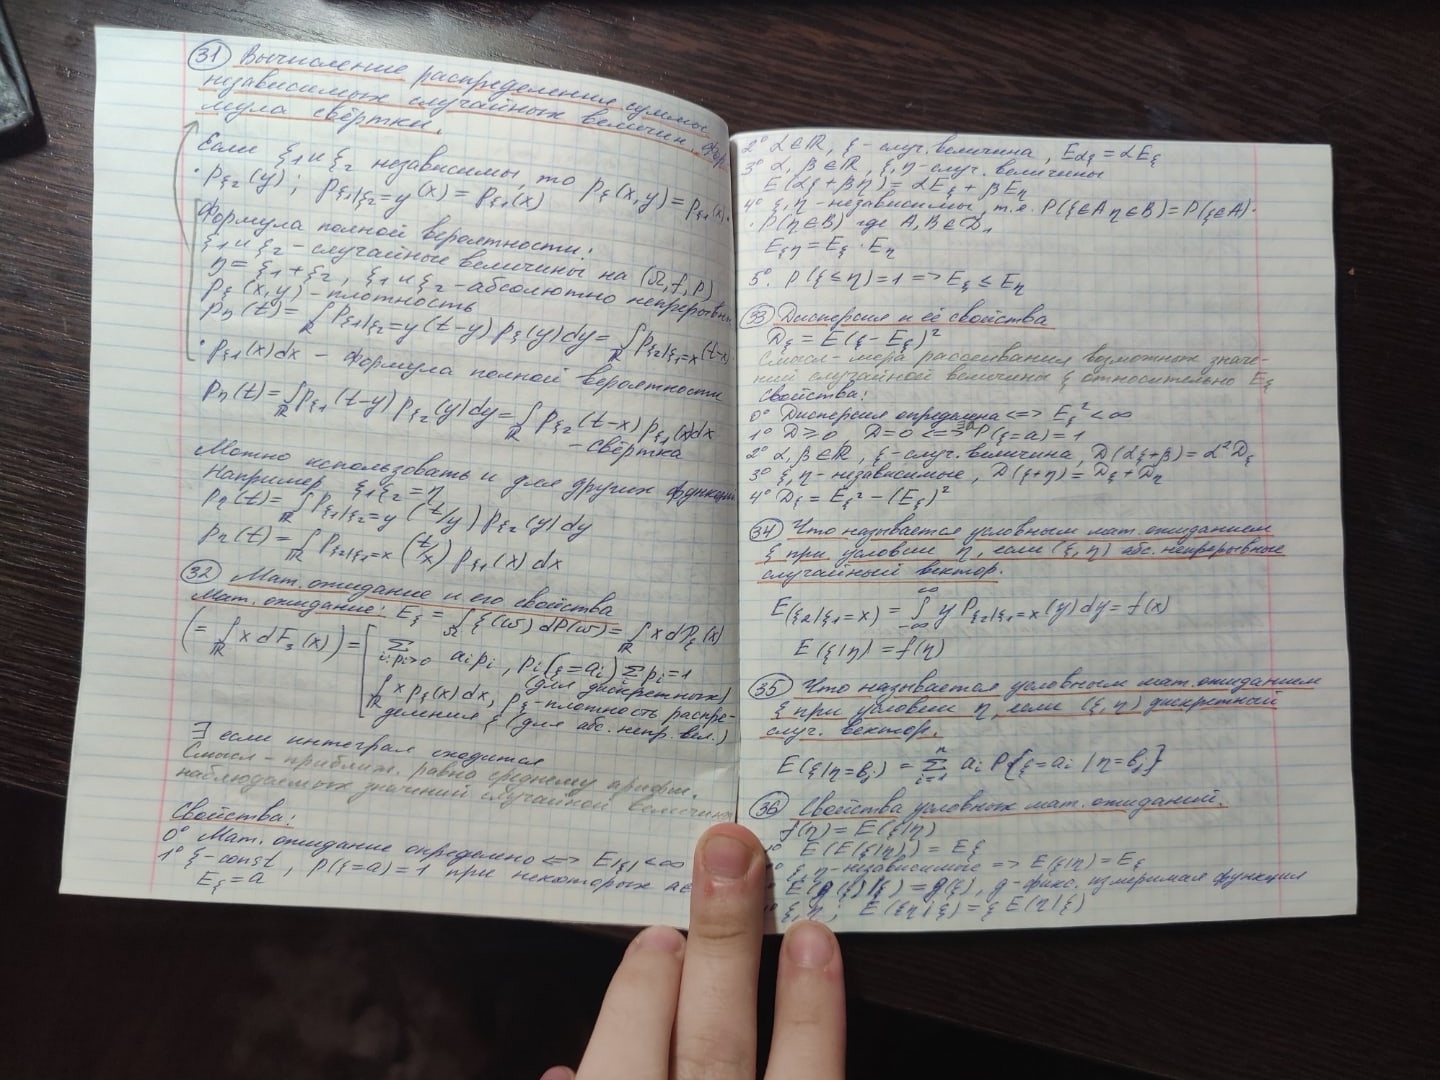 31 Вычисление распределения суммы
независимых случайных величин. Фор-
мула свёртки.
Если ξ₁ и ξ₂ независимы, то p_ξ(x,y) = p_ξ₁(x)·
·p_ξ₂(y); p_ξ₁|ξ₂=y(x) = p_ξ₁(x)
Формула полной вероятности:
ξ₁ и ξ₂ - случайные величины на (Ω, f, P)
η = ξ₁ + ξ₂, ξ₁ и ξ₂ - абсолютно непрерывны
p_ξ(x,y) - плотность
p_η(t) = ∫_ℝ p_ξ₁|ξ₂=y(t-y) p_ξ(y)dy = ∫_ℝ p_ξ₂|ξ₁=x(t-x)·
·p_ξ₁(x)dx - формула полной вероятности
p_η(t) = ∫_ℝ p_ξ₁(t-y) p_ξ₂(y)dy = ∫_ℝ p_ξ₂(t-x) p_ξ₁(x)dx
- свёртка
Можно использовать и для других функций
Например, ξ₁ξ₂ = η
p_η(t) = ∫_ℝ p_ξ₁|ξ₂=y (t/y) p_ξ₂(y)dy
p_η(t) = ∫_ℝ p_ξ₂|ξ₁=x (t/x) p_ξ₁(x)dx
32 Мат. ожидание и его свойства
Мат. ожидание: E_ξ = ∫_Ω ξ(ω) dP(ω) = ∫_ℝ x dP_ξ(x)
(= ∫_ℝ x dF_ξ(x)) = [ Σ_{i:pᵢ>0} aᵢpᵢ, pᵢ(ξ=aᵢ) Σpᵢ=1
(для дискретных)
∫_ℝ x p_ξ(x)dx, p_ξ - плотность распре-
деления ξ (для абс. непр. вел.)
∃ если интеграл сходится
Смысл - приближ. равно среднему арифм.
наблюдаемых значений случайной величины
Свойства:
0° Мат. ожидание определено <=> E|ξ| < ∞
1° ξ - const, P(ξ=a) = 1 при некоторых
E_ξ = a
2° α∈ℝ, ξ - случ. величина, E_αξ = αE_ξ
3° α, β∈ℝ, ξ, η - случ. величины
E(αξ+βη) = αE_ξ + βE_η
4° ξ, η - независимы, т.е. P(ξ∈A η∈B) = P(ξ∈A)·
·P(η∈B) где A, B∈𝒟₁
E_ξη = E_ξ · E_η
5°. P(ξ≤η) = 1 => E_ξ ≤ E_η
33 Дисперсия и её свойства
D_ξ = E(ξ-E_ξ)²
Смысл - мера рассеивания возможных значе-
ний случайной величины ξ относительно E_ξ
Свойства:
0° Дисперсия определена <=> E_ξ² < ∞
1° D ≥ 0 D=0 <=> ∃a P(ξ=a) = 1
2° α, β∈ℝ, ξ - случ. величина, D(αξ+β) = α²D_ξ
3° ξ, η - независимые, D(ξ+η) = D_ξ + D_η
4° D_ξ = E_ξ² - (E_ξ)²
34 Что называется условным мат. ожиданием
ξ при условии η, если (ξ, η) абс. непрерывные
случайный вектор.
E(ξ₂|ξ₁=x) = ∫_{-∞}^{∞} y P_ξ₂|ξ₁=x(y)dy = f(x)
E(ξ|η) = f(η)
35 Что называется условным мат. ожиданием
ξ при условии η, если (ξ, η) дискретный
случ. вектор.
E(ξ|η=bⱼ) = Σ_{i=1}^{n} aᵢ P{ξ=aᵢ | η=bⱼ}
36 Свойства условных мат. ожиданий.
f(η) = E(ξ|η)
E(E(ξ|η)) = E_ξ
ξ, η - независимые => E(ξ|η) = E_ξ
E(g(ξ)|ξ) = g(ξ), g - фикс. измеримая функция
ξ, η, E(ξη|ξ) = ξ E(η|ξ)